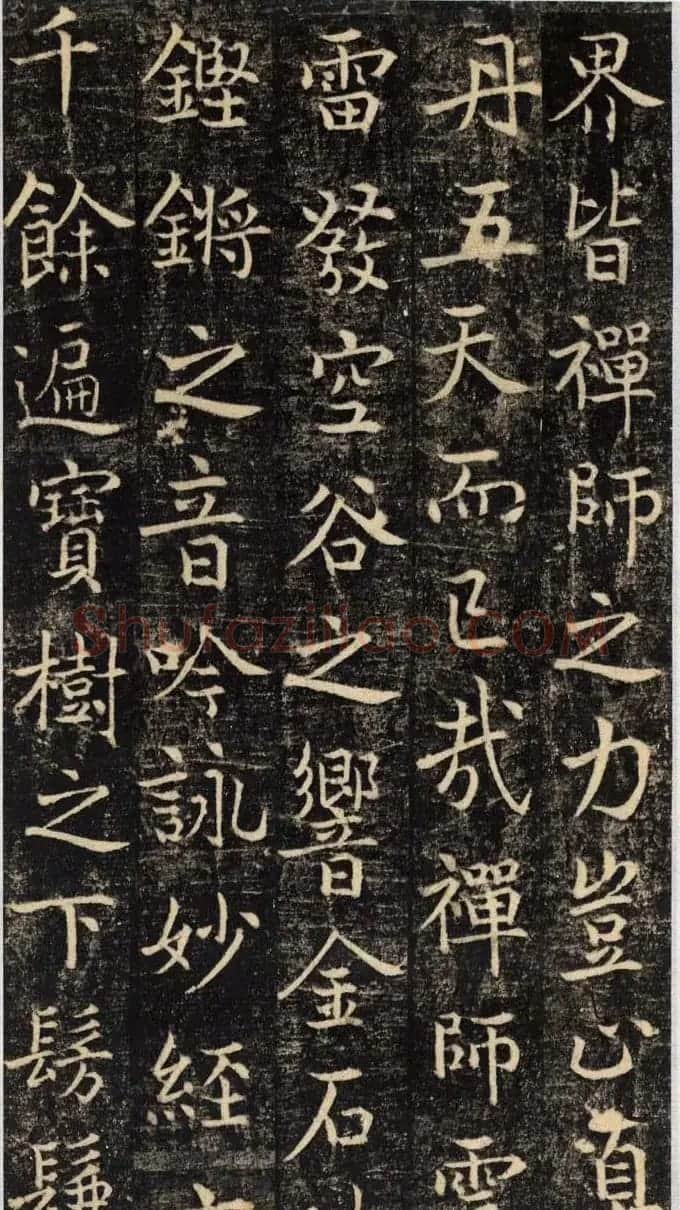 界皆禪師之力豈止真
丹五天而已哉禪師雲
雷發空谷之響金石
鏗鏘之音吟詠妙經六
千餘遍寶樹之下髣髴
Shufaziliao.COM